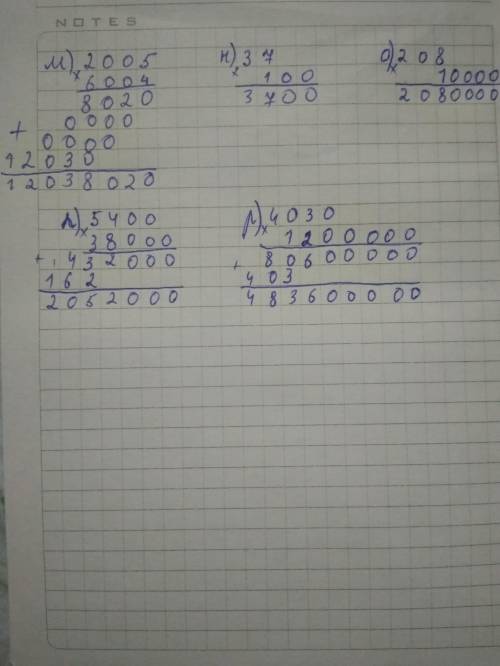 NOTES
м) 2005
× 6004
8020
+ 0000
0000
12030
12038020
н) 37
× 100
3700
о) 208
× 10000
2080000
п) 5400
× 38000
+ 432000
162
2052000
р) 4030
× 1200000
+ 80600000
403
483600000